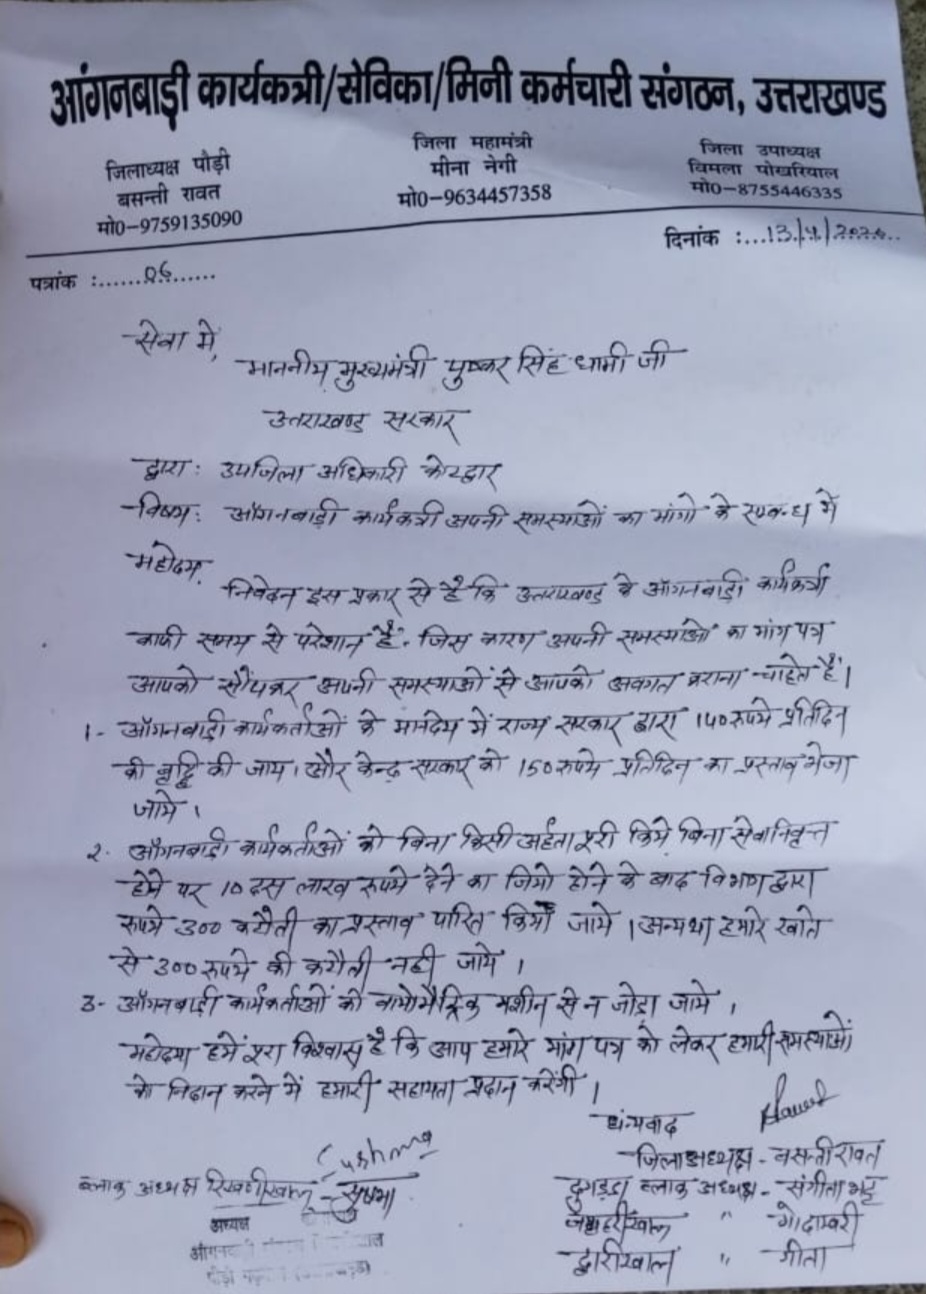 आंगनबाड़ी कार्यकत्री/सेविका/मिनी कर्मचारी संगठन, उत्तराखण्ड
जिलाध्यक्ष पौड़ी
बसन्ती रावत
मो0-9759135090
जिला महामंत्री
मीना नेगी
मो0-9634457358
जिला उपाध्यक्ष
विमला पोखरियाल
मो0-8755446335
दिनांक :...13/4/
पत्रांक :......06......
सेवा में,
माननीय मुख्यमंत्री पुष्कर सिंह धामी जी
उत्तराखण्ड सरकार
द्वारा: उपजिला अधिकारी कोटद्वार
विषय: ऑगनबाड़ी कार्यकत्री अपनी समस्याओं का मांगो के सम्बन्ध में
महोदय,
निवेदन इस प्रकार से है कि उत्तराखण्ड के ऑगनबाड़ी कार्यकत्री
काफी समय से परेशान हैं. जिस कारण अपनी समस्याओं का मांग पत्र
आपको सौंपकर अपनी समस्याओं से आपको अवगत कराना चाहते हैं।
1- ऑगनबाड़ी कार्यकर्ताओं के मानदेय में राज्य सरकार द्वारा 140 रूपये प्रतिदिन
की वृद्धि की जाय। और केन्द्र सरकार को 150 रूपये प्रतिदिन का प्रस्ताव भेजा
जाये।
2. ऑगनबाड़ी कार्यकर्ताओं को बिना किसी अर्हता पूरी किये बिना सेवानिवृत्त
होने पर 10 दस लाख रूपये देने का जिओ होने के बाद विभाग द्वारा
रूपये 300 कटौती का प्रस्ताव पारित किया जाये। अन्यथा हमारे खाते
से 300 रूपये की कटौती नही जाये।
3- ऑगनबाड़ी कार्यकर्ताओं को बायोमैट्रिक मशीन से न जोड़ा जाये।
महोदया हमें पूरा विश्वास है कि आप हमारे मांग पत्र को लेकर हमारी समस्याओं
के निदान करने में हमारी सहायता प्रदान करेंगी।
धन्यवाद
जिलाअध्यक्ष - बसन्ती रावत
Sushma
ब्लाक अध्यक्ष रिखणीखाल - सुषमा
दुगड्डा ब्लाक अध्यक्ष - संगीता भट्ट
अध्यक्ष
जयहरीखाल " - गोदाम्बरी
द्वारीखाल " - गीता